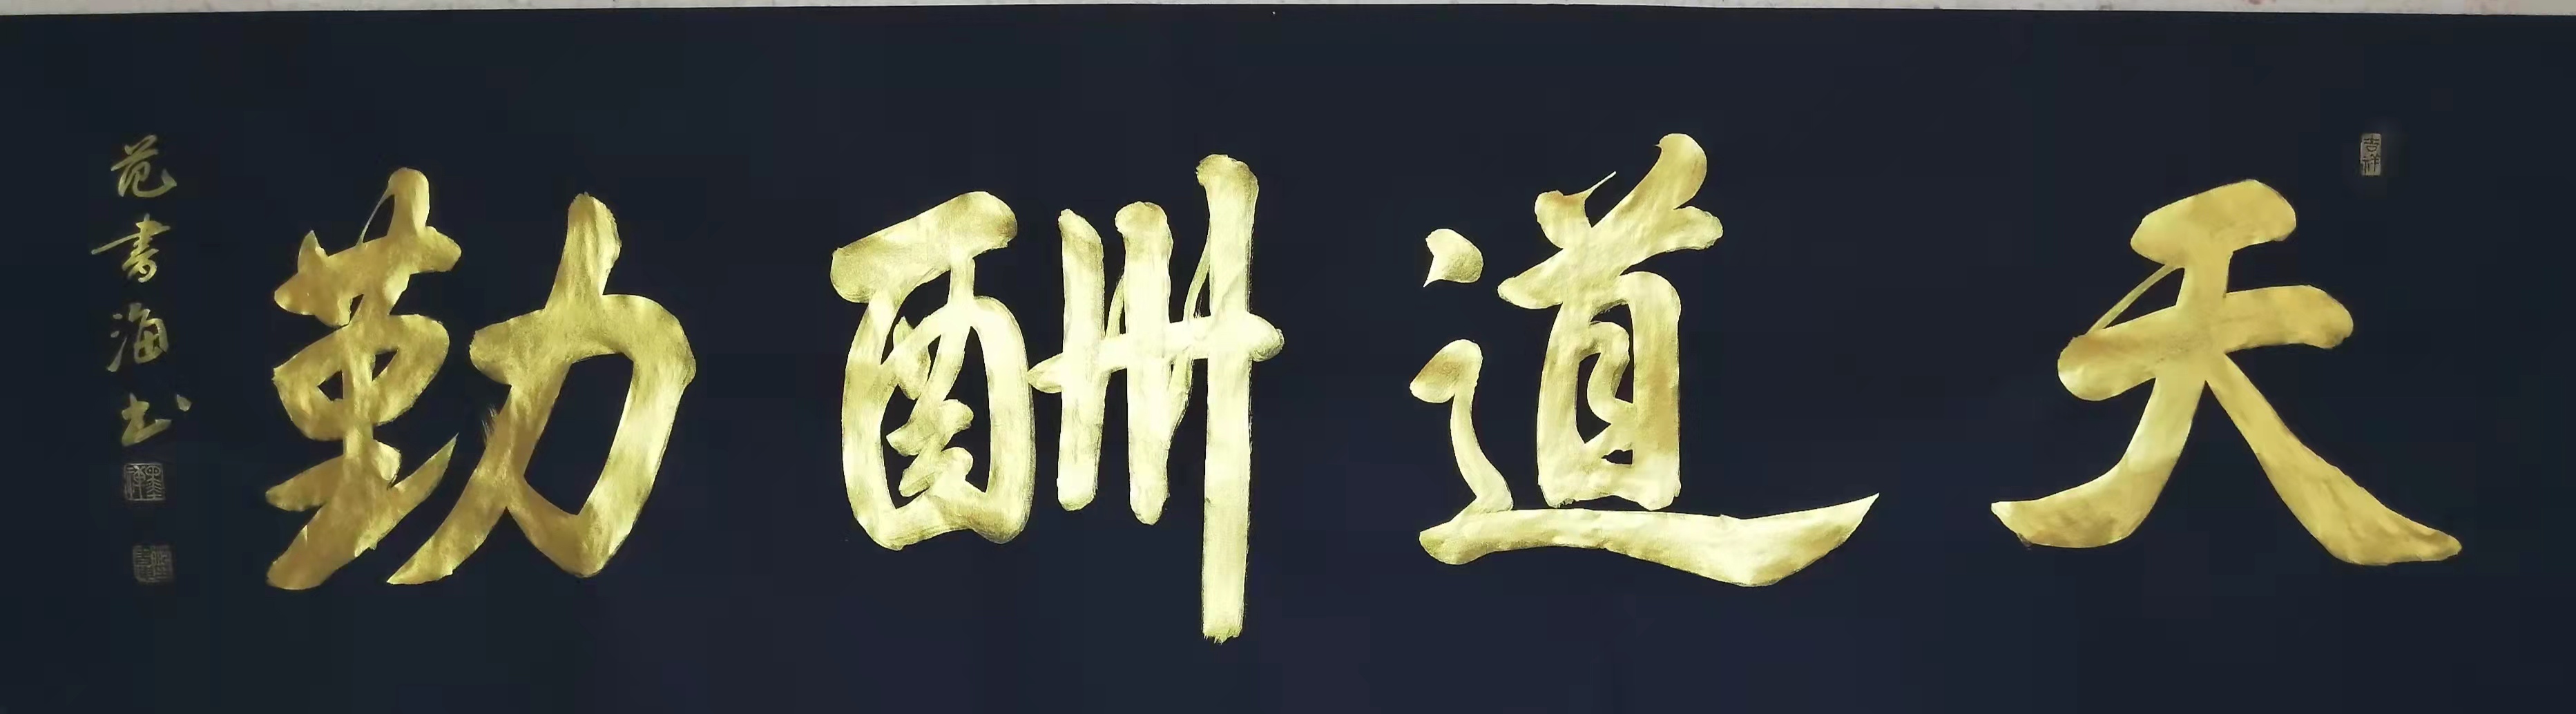 天道酬勤
范書海书
吉祥